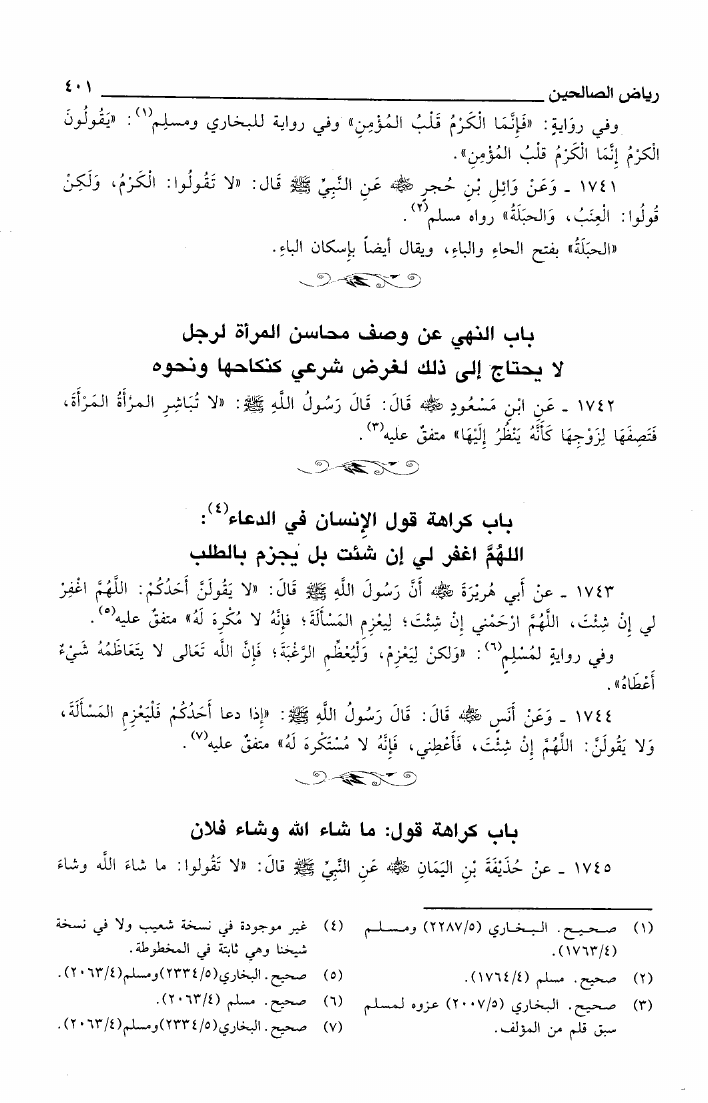 رياض الصالحين ٤٠١
وفي رِوَايَةٍ: «فَإِنَّمَا الْكَرْمُ قَلْبُ المُؤْمِنِ» وفي رواية للبخاري ومسلم(١): «يَقُولُونَ
الْكَرْمُ إِنَّمَا الْكَرْمُ قَلْبُ المُؤْمِنِ».
١٧٤١ ـ وَعَنْ وَائِلِ بْنِ حُجرٍ ﵁ عَنِ النَّبِيِّ ﷺ قَال: «لا تَقُولُوا: الْكَرْمُ، وَلَكِنْ
قُولُوا: الْعِنَبُ، وَالحبَلَةُ» رواه مسلم(٢).
«الحبَلَةُ» بفتح الحاءِ والباءِ، ويقال أيضاً بإسكان الباءِ.
باب النهي عن وصف محاسن المرأة لرجل
لا يحتاج إلى ذلك لغرض شرعي كنكاحها ونحوه
١٧٤٢ ـ عَنِ ابْنِ مَسْعُودٍ ﵁ قَالَ: قَالَ رَسُولُ اللَّهِ ﷺ: «لا تُبَاشِرِ المَرْأَةُ المَرْأَةَ،
فَتَصِفَهَا لِزَوْجِهَا كَأَنَّهُ يَنْظُرُ إِلَيْهَا» متفقٌ عليه(٣).
باب كراهة قول الإِنسان في الدعاء(٤):
اللهُمَّ اغفر لي إن شئت بل يجزم بالطلب
١٧٤٣ ـ عنْ أبي هُرَيْرَةَ ﵁ أَنَّ رَسُولَ اللَّهِ ﷺ قَالَ: «لا يَقُولَنَّ أَحَدُكُمْ: اللَّهُمَّ اغْفِرْ
لي إِنْ شِئْتَ، اللَّهُمَّ ارْحَمْنِي إِنْ شِئْتَ؛ لِيَعْزِمِ المَسْأَلَةَ؛ فَإِنَّهُ لا مُكْرِهَ لَهُ» متفقٌ عليه(٥).
وفي روايةٍ لمُسْلِمٍ(٦): «وَلكنْ لِيَعْزِمْ، وَلْيُعَظِّمِ الرَّغْبَةَ؛ فَإِنَّ اللَّه تَعَالى لا يَتَعَاظَمُهُ شَيْءٌ
أَعْطَاهُ».
١٧٤٤ ـ وَعَنْ أَنَسٍ ﵁ قَالَ: قَالَ رَسُولُ اللَّهِ ﷺ: «إذا دعا أَحَدُكُمْ فَلْيَعْزِمِ المَسْأَلَةَ،
وَلا يَقُولَنَّ: اللَّهُمَّ إِنْ شِئْتَ، فَأَعْطِني، فَإِنَّهُ لا مُسْتَكْرِهَ لَهُ» متفقٌ عليه(٧).
باب كراهة قول: ما شاء الله وشاء فلان
١٧٤٥ ـ عنْ حُذَيْفَةَ بْنِ اليَمَانِ ﵁ عَنِ النَّبِيِّ ﷺ قالَ: «لا تَقُولُوا: ما شاءَ اللَّه وشاءَ
(١) صحيح. البخاري (٢٢٨٧/٥) ومسلم
(١٧٦٣/٤).
(٢) صحيح. مسلم (١٧٦٤/٤).
(٣) صحيح. البخاري (٢٠٠٧/٥) عزوه لمسلم
سبق قلم من المؤلف.
(٤) غير موجودة في نسخة شعيب ولا في نسخة
شيخنا وهي ثابتة في المخطوطة.
(٥) صحيح. البخاري(٢٣٣٤/٥)ومسلم(٢٠٦٣/٤).
(٦) صحيح. مسلم (٢٠٦٣/٤).
(٧) صحيح. البخاري(٢٣٣٤/٥)ومسلم(٢٠٦٣/٤).